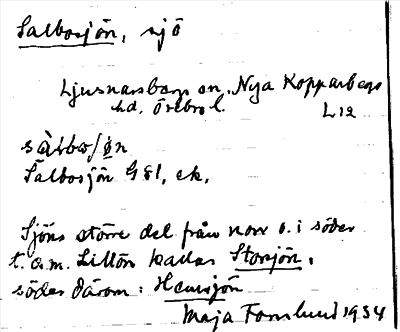 Salbosjön, sjö
Ljusnarsbergs sn, Nya Kopparbergs
hd, Örebro l. L12
Salbosjön G81, ek,
Sjöns större del från norr o. i söder
t.o.m. Lillön kallas Storsjön,
söder därom: Hemsjön
Maja Fornlund 1934